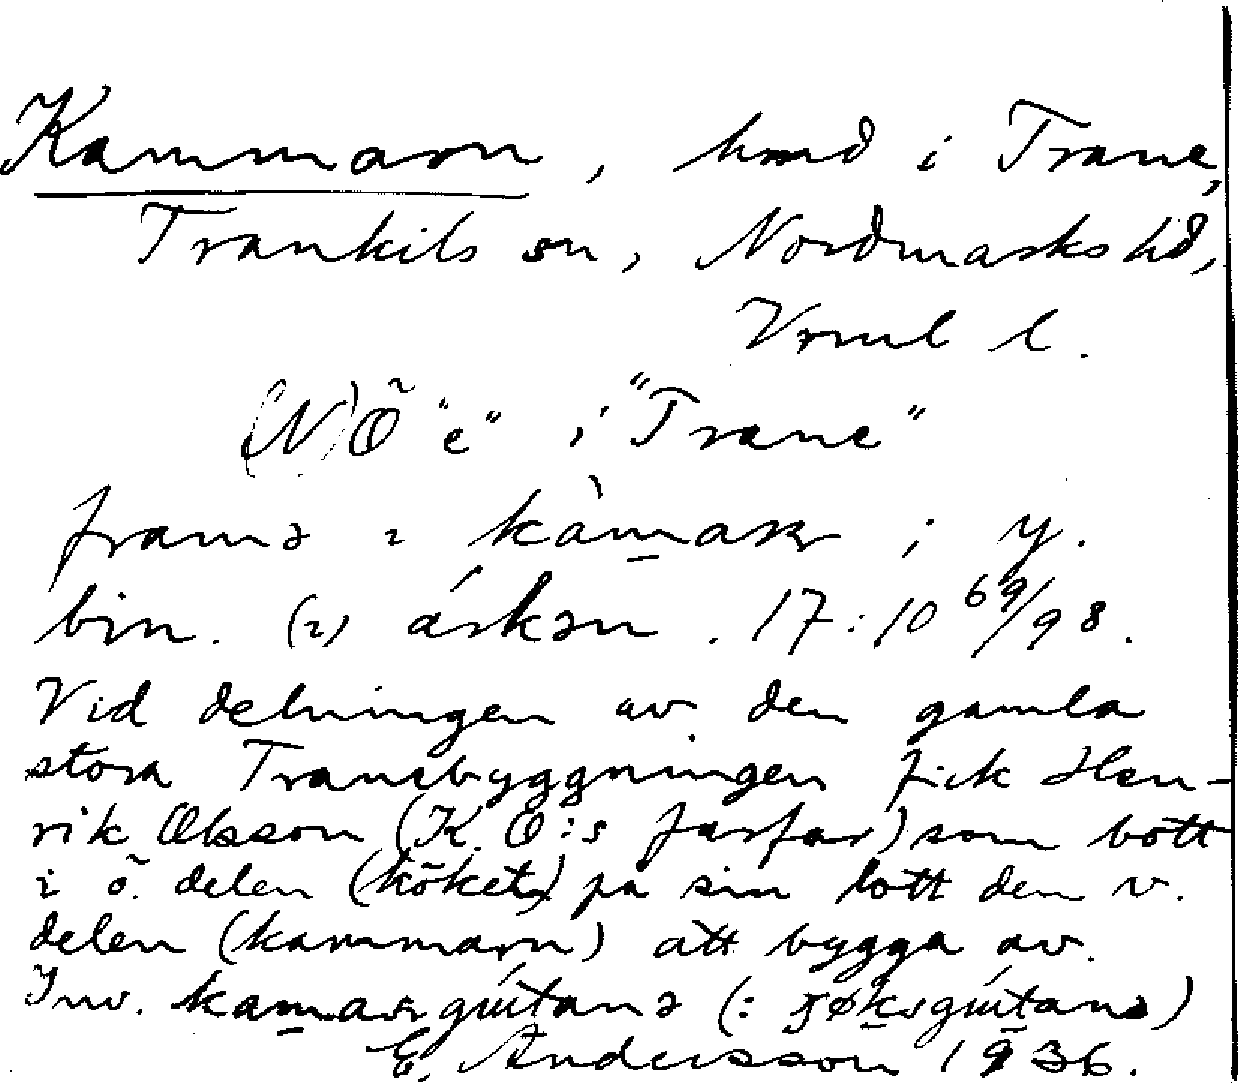 Kammarn, hmd i Trane,
Trankils sn, Nordmarks hd,
Vrml l.
(N)Ö "c" i "Trane"
framə = kàmaṛ ; y.
bin. (=) árkən. 17:10 69/98.
Vid delningen av den gamla
stora Tranebyggningen fick Hen-
rik Olsson (K. O:s farfar) som bott
i ö. delen (köket) på sin lott den v.
delen (kammarn) att bygga av.
Inv.
E. Andersson 1936.